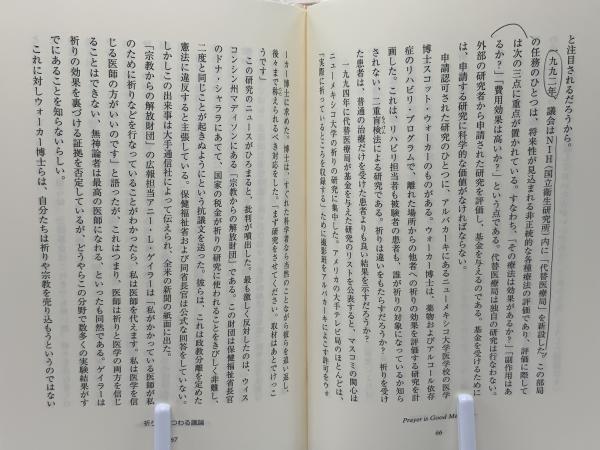 と注目されるだろうから。
一九九二年、議会はNIH（国立衛生研究所）内に「代替医療局」を新設した。この部局
の任務のひとつは、将来性が見込まれる非正統的な各種療法の評価であり、評価に際して
は次の三点に重点が置かれている。すなわち、「その療法は効果があるか？」「副作用はあ
るか？」「費用効果は高いか？」という点である。代替医療局は独自の研究は行なわない。
外部の研究者から申請された研究を評価し、基金を与えるのである。基金を受けるために
は、申請する研究に科学的な価値がなければならない。
申請認可された研究のひとつに、アルバカーキにあるニューメキシコ大学医学校の医学
博士スコット・ウォーカーのものがある。ウォーカー博士は、薬物およびアルコール依存
症のリハビリ・プログラムで、離れた場所からの他者への祈りの効果を評価する研究を計
画した。これは、リハビリ担当者も被験者の患者も、誰が祈りの対象になっているか知ら
されない、二重盲検法による研究である。祈りは違いをもたらすだろうか？　祈りを受け
た患者は、普通の治療だけを受けた患者よりも良い結果を示すだろうか？
一九九四年に代替医療局が基金を与えた研究のリストを公表すると、マスコミの関心は
ニューメキシコ大学の祈りの研究に集中した。アメリカの大手テレビ局のほとんどは、
「実際に祈っているところを収録する」ために撮影班をアルバカーキによこす許可をウォ
Prayer is Good Me
66
ーカー博士に求めた。博士は、すぐれた科学者なら当然のことながら彼らを追い返し、
後々まで称えられるべき対応をした。「まず研究をさせてください。取材はあとでけっこ
うです」
この研究のニュースがひろまると、批判が噴出した。最も激しく反対したのは、ウィス
コンシン州マディソンにある「宗教からの解放財団」である。この財団は保健福祉省長官
のドナ・シャララにあてて、国家の税金が祈りの研究に使われることをきびしく非難し、
二度と同じことが起きぬようにという抗議文を送った。彼らは、これは政教分離を定めた
憲法に違反すると主張している。保健福祉省および同省長官は公式な回答をしていない。
しかしこの出来事は大手通信社によって伝えられ、全米の新聞の紙面に出た。
「宗教からの解放財団」の広報担当アニー・L・ゲイラーは「私がかかっている医師が私
のために祈りなどを行なっていることがわかったら、私は医師を代えます。私は医学を信
じる医師の方がいいのです」と語ったが、これはつまり、医師は祈りと医学の両方を信じ
ることはできない、無神論者は最高の医師になれる、といったも同然である。ゲイラーは
祈りの効果を裏づける証拠を否定しているが、どうやらこの分野で数多くの実験結果がす
でにあることを知らないらしい。
これに対しウォーカー博士らは、自分たちは祈りや宗教を売り込もうというのではない
祈り　つわる議論
67